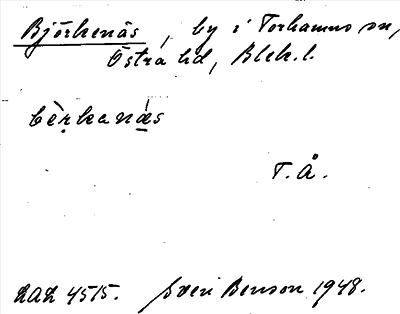 Björkenäs, by i Torhamns sn,
Östra hd, Blek. l.
bèrkanæs
T. Å.
LAL 4515. Sven Benson 1948.